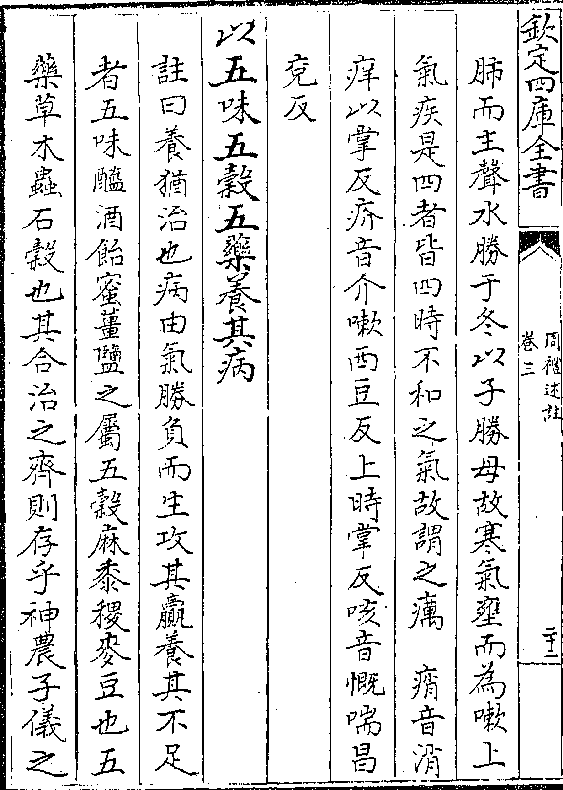 欽定四庫全書
周禮述註
卷三
二十二
肺而主聲水勝于冬以子勝母故寒氣壅而為嗽上
氣疾是四者皆四時不和之氣故謂之癘　痟音消
痒以掌反疥音介嗽西豆反上時掌反咳音慨喘昌
兖反
以五味五穀五藥養其病
註曰養猶治也病由氣勝負而生攻其贏養其不足
者五味醯酒飴蜜薑鹽之屬五穀麻黍稷麥豆也五
藥草木蟲石穀也其合治之齊則存乎神農子儀之